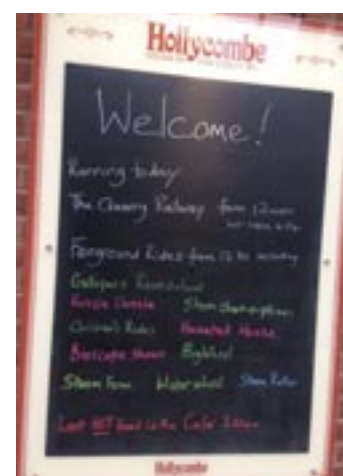 Hollycombe
Welcome!
Running today
The Quarry Railway from 12 noon
Fairground Rides from 12
Gallopers Roundabout
Razzle Dazzle Steam
Children's Rides Haunted House
Bioscope Shows Big Wheel
Steam Farm Waterwheel Steam Roller
Last HOT food in the Café
Hollycombe